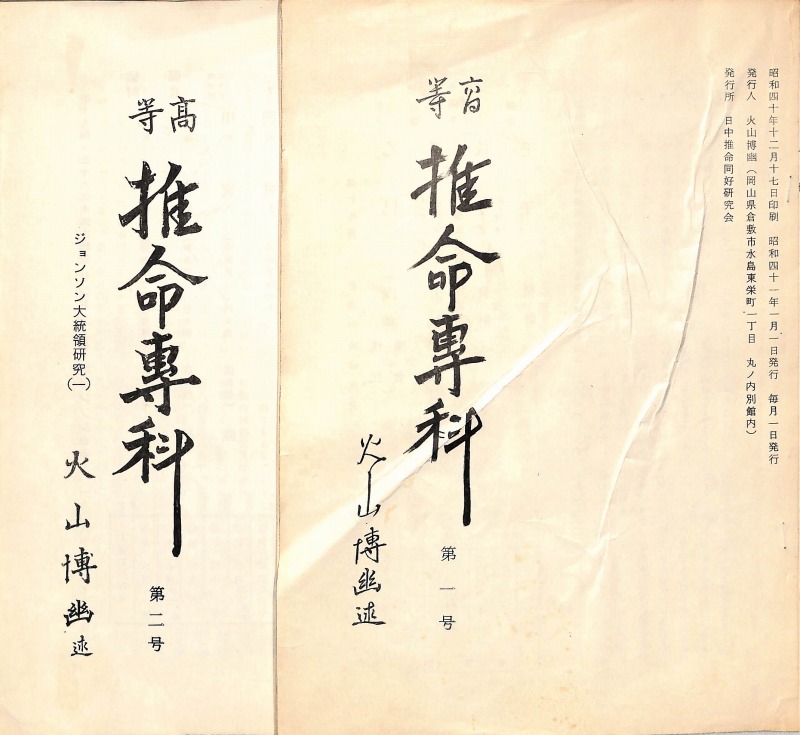 昭和四十年十二月十七日印刷　昭和四十一年一月一日発行　毎月一日発行
発行人　火山博幽（岡山県倉敷市水島東栄町一丁目　丸ノ内別館内）
発行所　日中推命同好研究会
高等
推命專科
第一号
火山博幽述
高等
推命專科
第二号
ジョンソン大統領研究（一）
火山博幽述